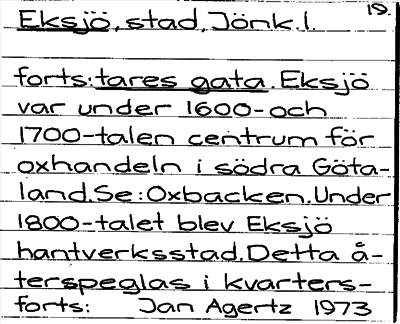 15.
Eksjö, stad, Jönk.l.
forts: tares gata. Eksjö
var under 1600-och
1700-talen centrum för
oxhandeln i södra Göta-
land. Se: Oxbacken. Under
1800-talet blev Eksjö
hantverksstad. Detta å-
terspeglas i kvarters-
forts: Jan Agertz 1973